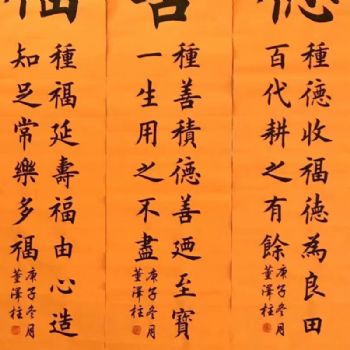 德
種德收福德為良田
百代耕之有餘
庚子冬月
董澤柱
善
種善積德善廼至寶
一生用之不盡
庚子冬月
董澤柱
福
種福延壽福由心造
知足常樂多福
庚子冬月
董澤柱